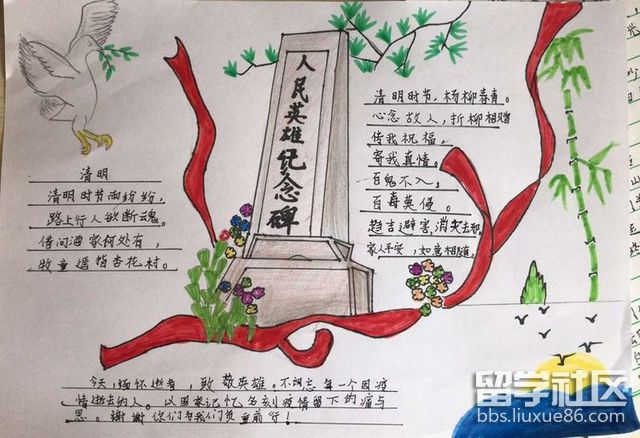 人民英雄纪念碑
清明
清明时节雨纷纷,
路上行人欲断魂。
借问酒家何处有,
牧童遥指杏花村。
清明时节,杨柳春青。
心念故人,折柳相赠
传我祝福,
寄我真情。
百鬼不入,
百毒莫侵。
趋吉避害,消灾去却
家人平安,如意相随。
今天,缅怀逝者,致敬英雄。不词忘每一个因疫
情逝去的人。以国家记忆名刻疫情留下的痛与
思。谢谢你们为我们负重前行!
留学社区
bbs.liuxue86.com